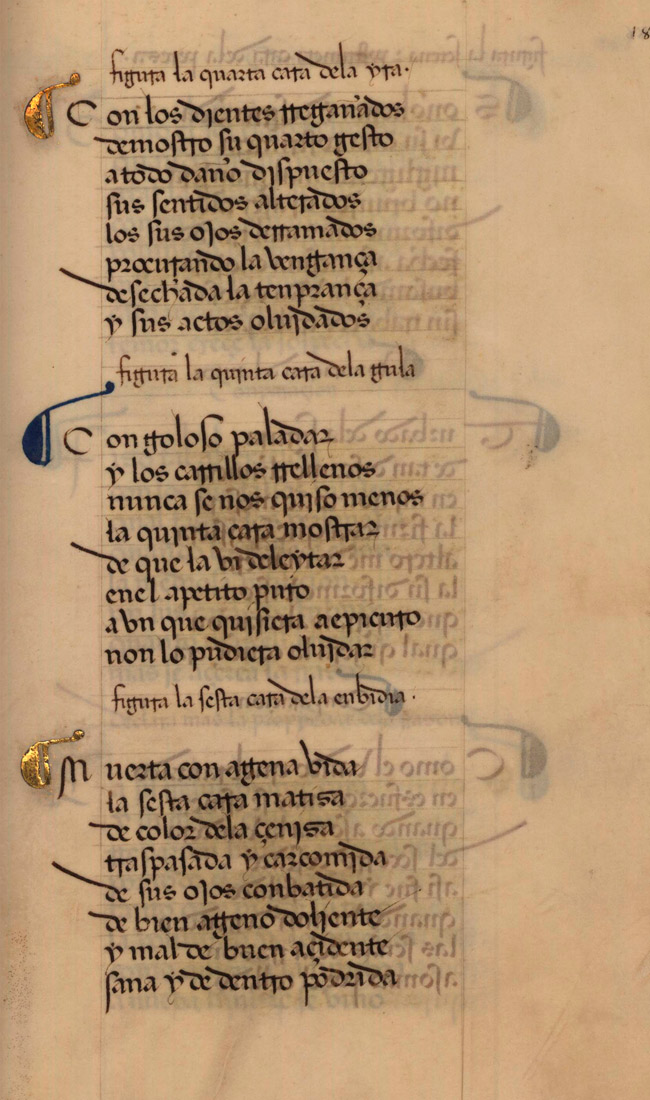 figura la quarta cara dela yra.
Con los dientes rreganados
demostro su quarto gesto
a todo daño dispuesto
sus sentidos alterados
los sus ojos derramados
procurando la vengança
desechada la tenprança
y sus actos oluidados
figura la quinta cara dela gula
Con goloso paladar
y los carrillos rrellenos
nunca se nos quiso menos
la quinta cara mostrar
de que la vi deleytar
enel apetito puro
avn que quisiera a epicuro
non lo pudiera oluidar
figura la sesta cara dela enbidia.
Muerta con agena vida
la sesta cara matisa
de color dela çenisa
traspasada y carcomida
de sus ojos conbatida
de bien ageno doliente
y mal de buen açidente
sana y de dentro podrida